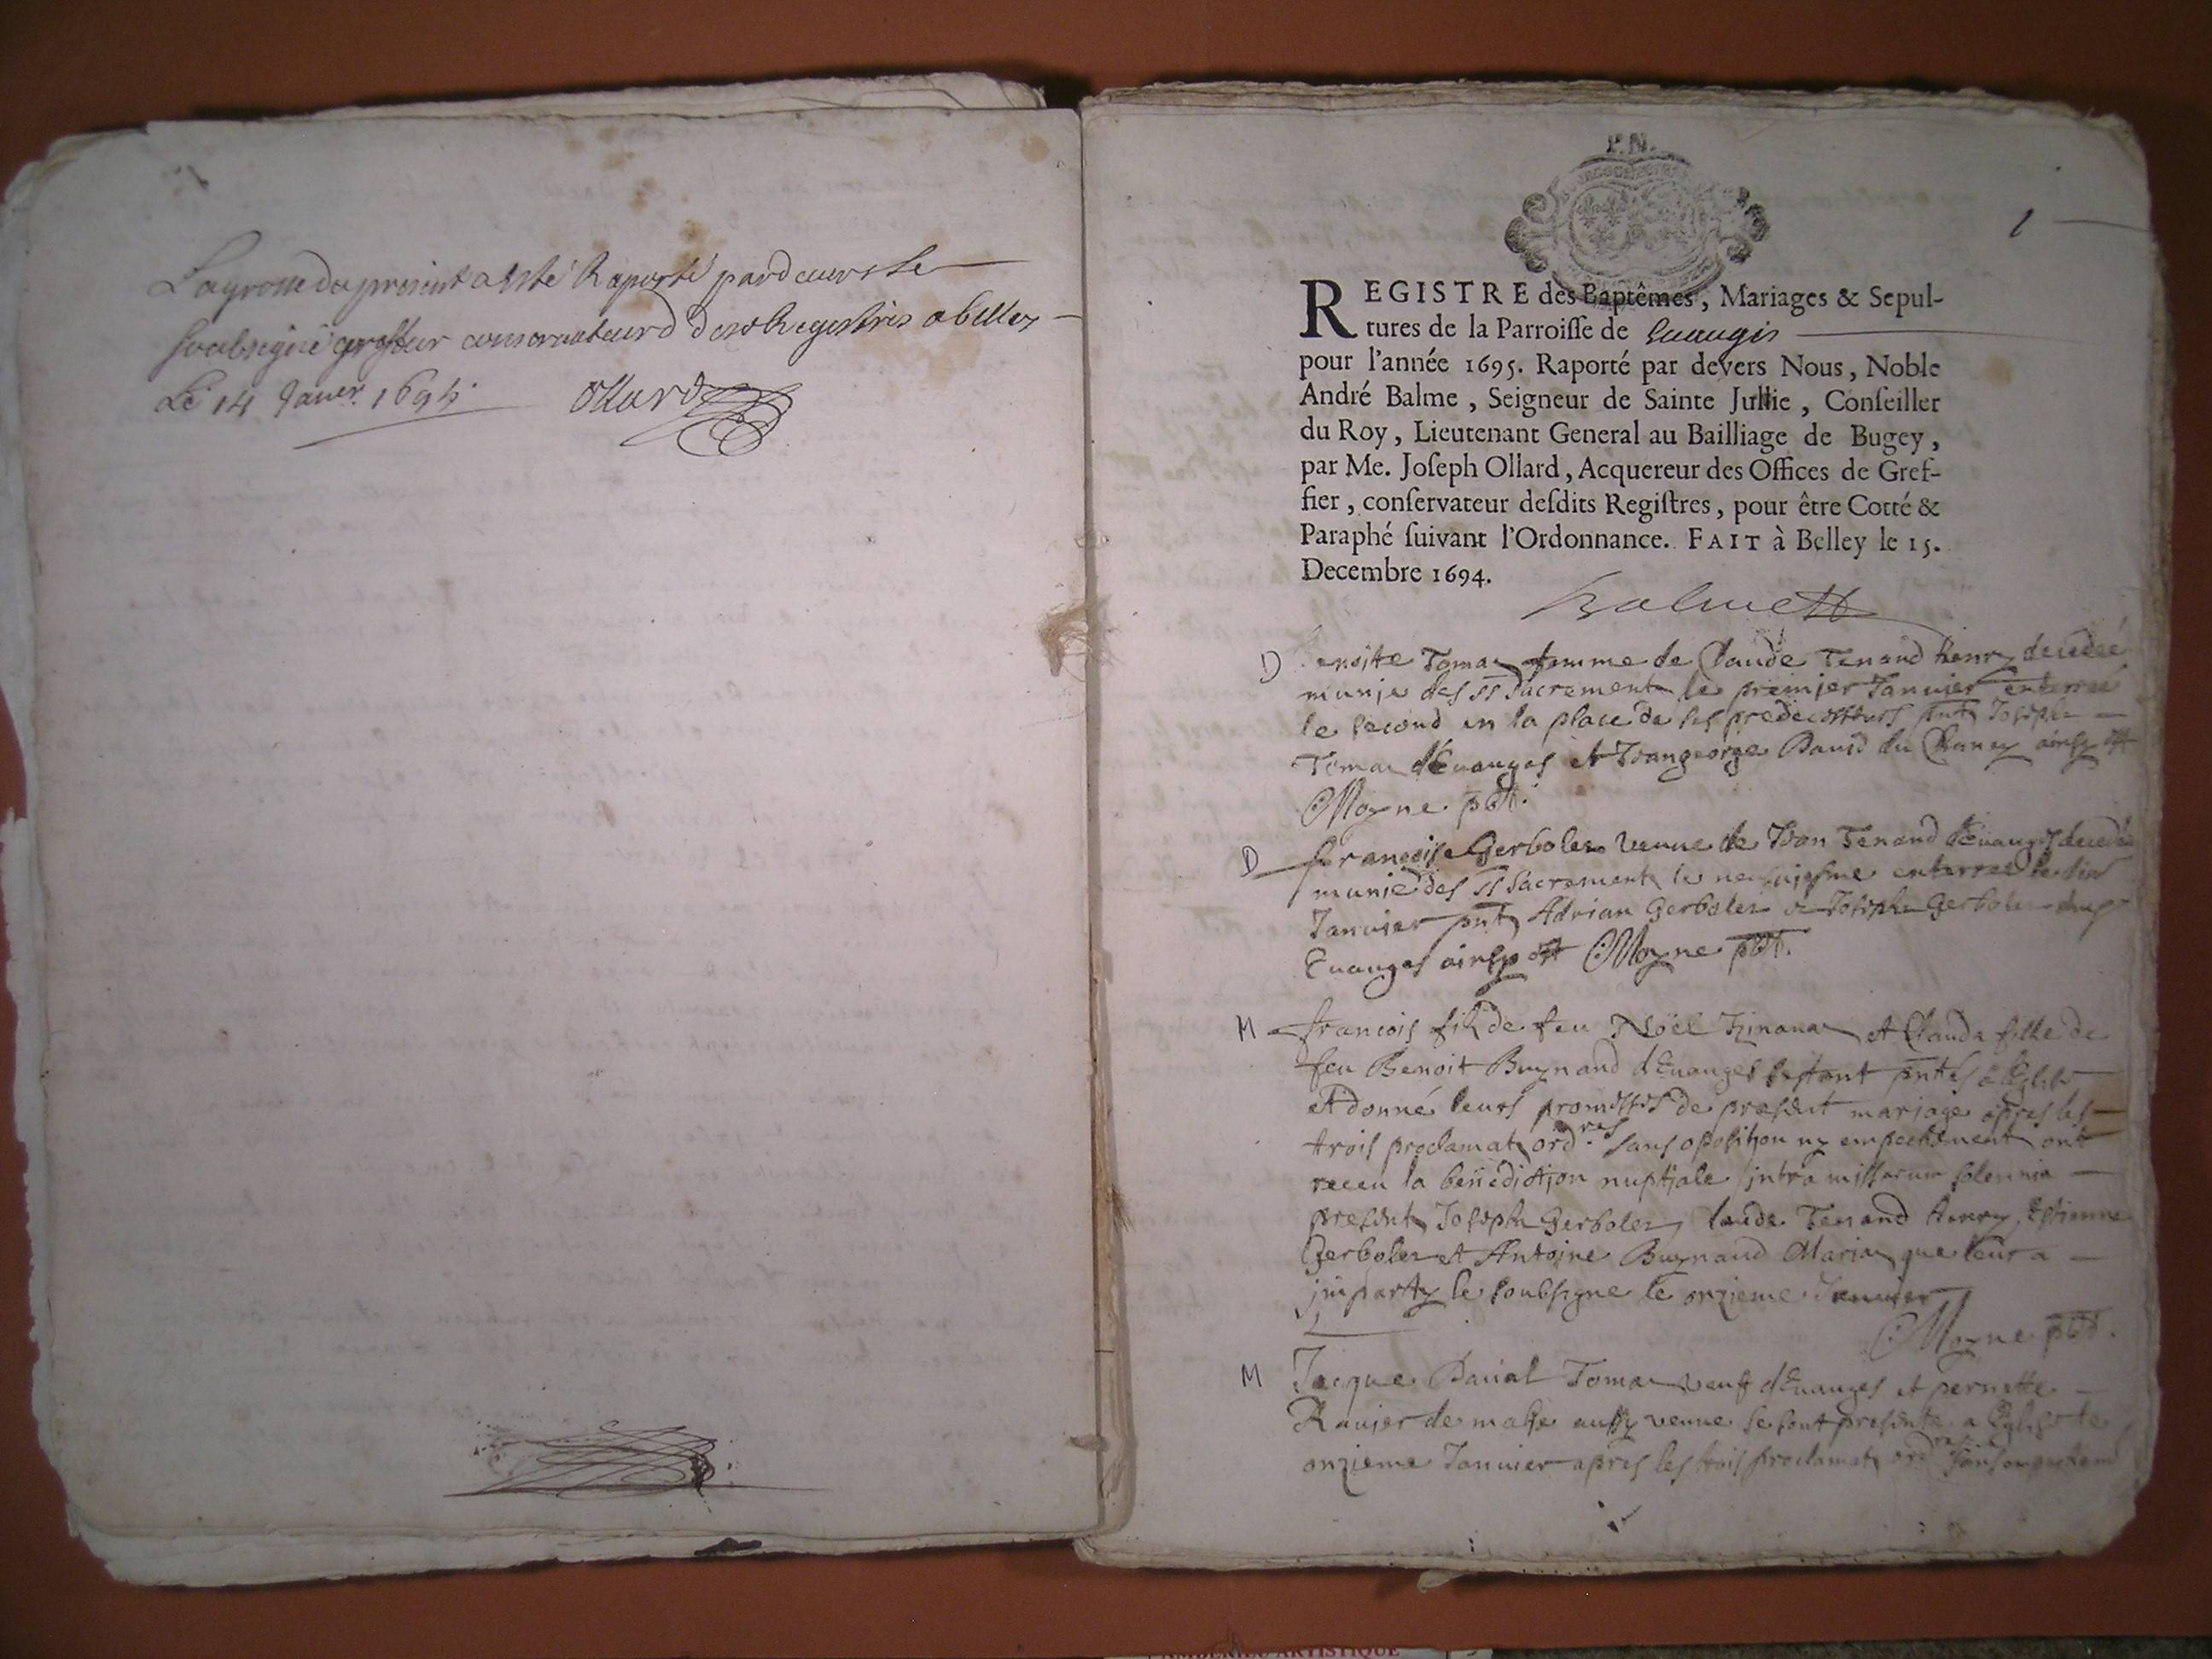 La grosse du present a esté Raporté pardevers le
soubsigné greffier conservateur desd Registres a belley
Le 14 Janer. 1695.
Ollard
P.N.
1
REGISTRE des Baptêmes, Mariages & Sepul-
tures de la Parroiſſe de Euuangis
pour l'année 1695. Raporté par devers Nous, Noble
André Balme, Seigneur de Sainte Jullie, Conſeiller
du Roy, Lieutenant General au Bailliage de Bugey,
par Me. Joſeph Ollard, Acquereur des Offices de Gref-
fier, conſervateur deſdits Regiſtres, pour être Cotté &
Paraphé ſuivant l'Ordonnance. FAIT à Belley le 15.
Decembre 1694.
D enoite Tomaz femme de Claude Tenand henry decedeé
munie des SS Sacrements le premier Januier enterreé
le second en la place de ses predecesseurs pnts Joseph
Tomaz d'Euanges et Jeangeorge Dauid du ainsy est
Moyne pbr.
D francoise Gerbolez veuue de Jean Tenand d'Euanges decedeé
munie des SS Sacrements le neufuiesme enterreé le dix
Januier pnts Adrian Gerbolez & Joseph Gerbolez
Euanges ainsy est Moyne pbr.
M francois fils de feu Noël et Claude fille de
feu Benoit Buynand d'Euanges sestant pntes a leglise
et donné leurs promesses de present mariage apres les
trois proclamat ordres sans oposition ny empechement ont
receu la benediction nuptiale intra missarum solennia
presents Joseph Gerbolez Claude Tenand henry, Estienne
Gerbolez et Antoine Buynand Mariaz que leur a
imparty le soubsigne le onzieme Januier
Moyne pbr.
M Jacque Dauid Tomaz veuf d'Euanges et pernette
Rauier de aussy veuue se sont presente a leglise le
onzieme Januier apres les trois proclamat ordres sans empechem